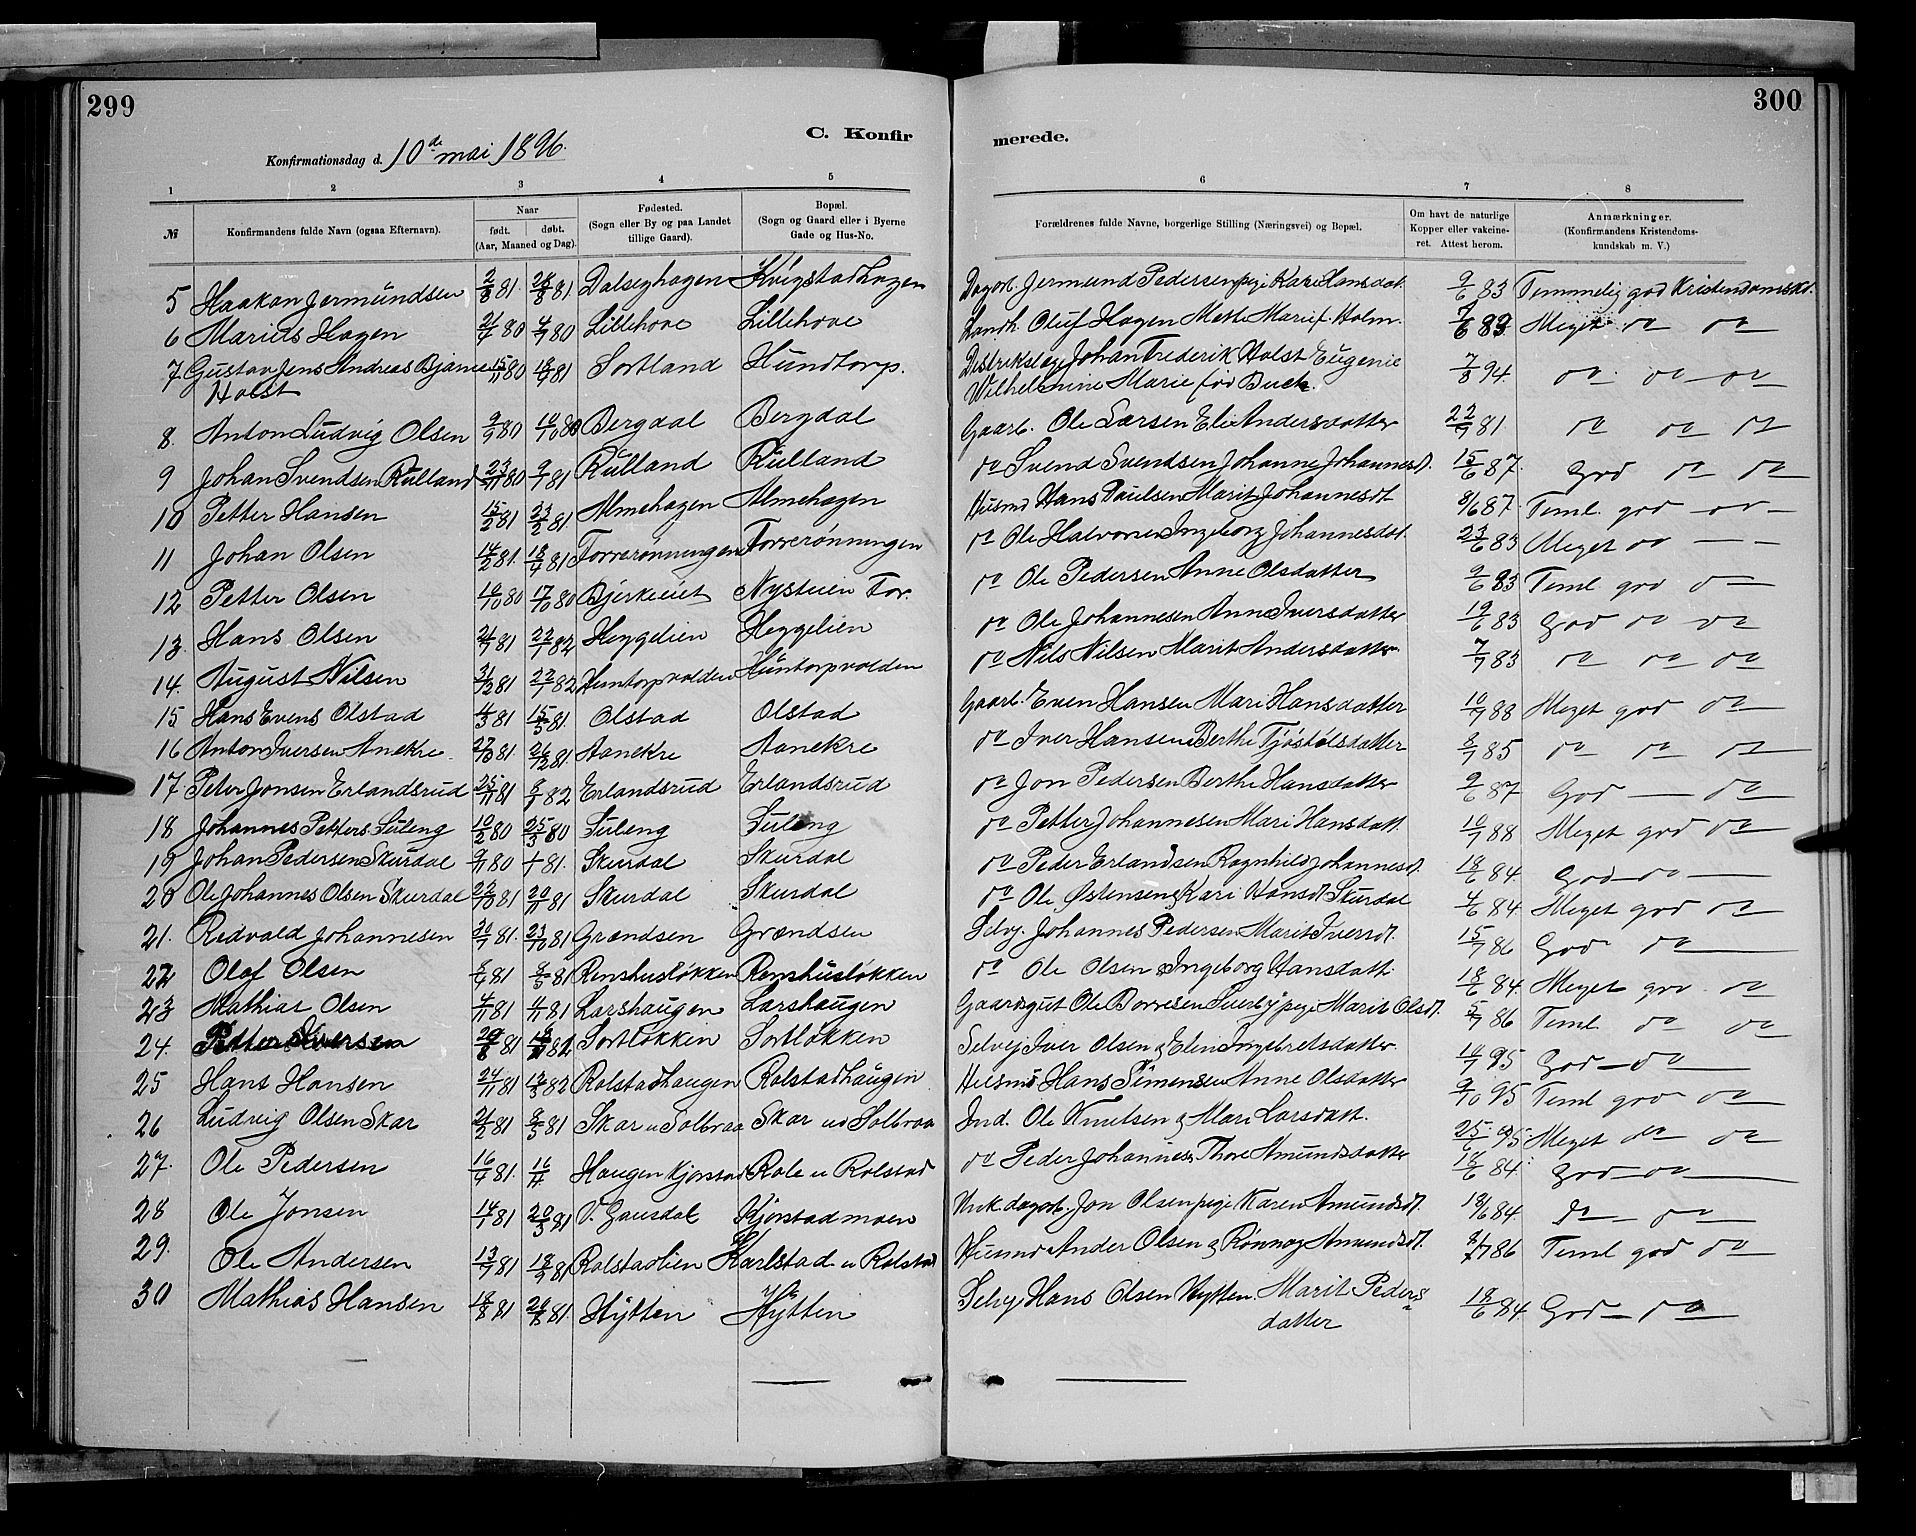 299
300
C. Konfir
merede.
Konfirmationsdag d. 10de mai 1896.
1 2 3 4 5 6 7 8
№ Konfirmandens fulde Navn (ogsaa Efternavn). Naar født. døbt. (Aar, Maaned og Dag). Fødested. (Sogn eller By og paa Landet tillige Gaard). Bopæl. (Sogn og Gaard eller i Byerne Gade og Hus-No. Forældrenes fulde Navne, borgerlige Stilling (Næringsvei) og Bopæl. Om havt de naturlige Kopper eller vakcineret. Attest herom. Anmærkninger. (Konfirmandens Kristendomskundskab m. V.)
5 Haakon Jermundsen 2/8 81. 28/8 81. Dalseghagen Kvigstadhagen Dagarb. Jermund Pedersen pige Kari Hansdat. 9/6 83 Temmelig god Kristendomskd.
6 Marius Hagen 80 80 Lillehove Lillehove Landh. Oluf Hagen Mette Marie f. Holm. 7/6 83 Meget do do
7 Gustav Jens Andreas Bjarne 15/11 80 81 Sortland Hundtorp. Distriktslæge Johan Frederik Holst Eugenie 7/8 94. do do do
Holst Wilhelmine Marie fød Buck.
8. Anton Ludvig Olsen 9/9 80 10/10 80 Bergdal Bergdal Gaarb. Ole Larsen Eli Andersdatter 22/9 81 do do do
9 Johan Svendsen Rulland 23/11 80 9/1 81 Rulland Rulland do Svend Svendsen Johanne Johannesd. 15/6 87. God do do
10 Petter Hansen 15/2 81 23/2 81 Almehagen Almehagen Husmd Hans Paulsen Marit Johannesdt 8/6 87. Teml. god do
11 Johan Olsen 14/2 81. 18/4 81 Forrerønningen Forrerønningen do Ole Halvorsen Ingeborg Johannesdat. 23/6 83 Meget do
12 Petter Olsen 16/10 80 17/10 80 Bjerkeiet Nysteien For. do Ole Pedersen Anne Olsdatter 9/6 83 Teml god do
13. Hans Olsen 81 22/1 82 Heggelien Heggelien do Ole Johannesen Anne Iversdatter 19/6 83 God do do
14. August Nilsen 31/12 81 22/1 82 Huntorpvolden Huntorpvolden do Nils Nilsen Marit Andersdatter. 7/7 83 do do do
15 Hans Evens Olstad 4/3 81 15/5 81. Olstad Olstad Gaarb. Even Hansen Mari Hansdatter 10/7 88 Meget god do
16 Anton Iversen Aanekre. 27/10 81. 26/12 81. Aanekre Aanekre do Iver Hansen Berthe Tjøstølsdatter 8/7 85 do do do
17. Peter Jonsen Erlandsrud 25/11 81 8/1 82 Erlandsrud Erlandsrud do Jon Pedersen Berthe Hansdatter 9/6 87 God do
18 Johannes Petters Suleng 10/2 80 25/3 80 Suleng Suleng do Petter Johannesen Mari Hansdatt. 10/7 88 Meget god do
19 Johan Pedersen Skurdal 9/11 80 81. Skurdal Skurdal do Peder Erlandsen Ragnhild Johannesd. 18/6 84. God do
20 Ole Johannes Olsen Skurdal 22/10 81 20/11 81 Skurdal Skurdal do Ole Østensen & Kari Hansdt Skurdal 4/6 84. Meget god do
21. Redvald Johannesen 81. 23/10 81 Grændsen Grændsen Selvj. Johannes Pedersen Marit Iversdt. 15/7 86 God do
22 Olaf Olsen 81 81 Renshusløkken Renshusløkken do Ole Olsen & Ingeborg Hansdatt. 18/6 84. Meget god do
23 Mathias Olsen 81 81 Larshaugen Larshaugen Gaardsgut Ole Borresen pige Marit Olsd. 5/7 86 Teml do do
24. Petter Iversen 81 82 Sortløkken Sortløkken Selvej Iver Olsen & Elen Ingebretsdatter. 95 God do
25 Hans Hansen 24/11 81 82 Rolstadhaugen Rolstadhaugen Husmd Hans Simensen Anne Olsdatter 9/10 95 Teml god do
26 Ludvig Olsen Skar 81 8/5 81 Skar u Solbraa Skar u Solbraa Ind. Ole Knutsen & Mari Larsdatt. 25/6 95 Meget do do
27. Ole Pedersen 81. Haugen Kjorstad Role u Rolstad do Peder Johannes Thore Amundsdatter 18/6 84. God do
28 Ole Jonsen 14/1 81 20/3 81 V. Gausdal Kjorstadmoen Unk dagarb. Jon Olsen pige Karen Amundsdt. 18/6 84. do do
29. Ole Andersen 13/7 81 18/9 81 Rolstadlien Karlstad u Rolstad Husmd Ander Olsen & Rønnog Amundsdt. 86 Teml god do
30 Mathias Hansen 18/8 81 81 Hytten Hytten Selvj Hans Olsen Hytten Marit Peders 18/6 84. God do
datter